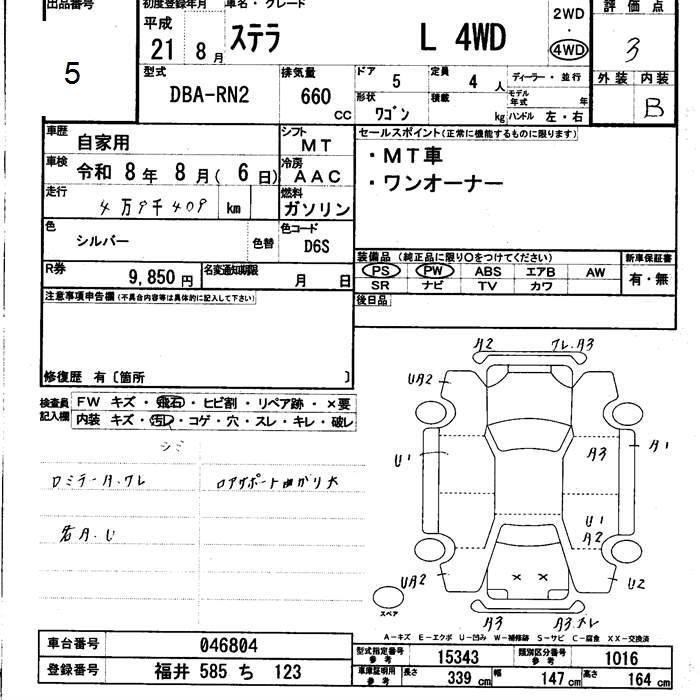 出品番号
5
初度登録年月 車名・グレード
平成
21 8月 ステラ L 4WD
2WD
・
4WD
評価点
3
外装 内装
B
型式
DBA-RN2
排気量
660 cc
ドア 5 定員 4人
形状 ワゴン 積載 kg
ディーラー・並行
モデル年式 年
ハンドル 左・右
車歴 自家用
シフト MT
車検 令和 8年 8月( 6日)
冷房 AAC
走行 4万9千409 km
燃料 ガソリン
色 シルバー 色替
色コード D6S
R券 9,850円 名変通知期限 月 日
セールスポイント(正常に機能するものに限ります)
・MT車
・ワンオーナー
装備品(純正品に限り○をつけてください)
PS PW ABS エアB AW
SR ナビ TV カワ
新車保証書
有・無
後日品
注意事項申告欄(不具合内容等は具体的に記入して下さい)
修復歴 有〔箇所 〕
検査員記入欄
FW キズ・飛石・ヒビ割・リペア跡・×要
内装 キズ・汚レ・コゲ・穴・スレ・キレ・破レ
シミ
ロミラーA.ワレ ロアサポート曲がり大
若A.U
A2 ワレ.A3
UA2
A1
U1 A3
U1
A2
UA2 U2
スペア
A3 A3.ナレ
A-キズ E-エクボ U-凹み W-補修跡 S-サビ C-腐食 XX-交換済
車台番号 046804
登録番号 福井 585 ち 123
型式指定番号 参考 15343 類別区分番号 参考 1016
車庫証明用 参考 長さ 339cm 幅 147cm 高さ 164cm